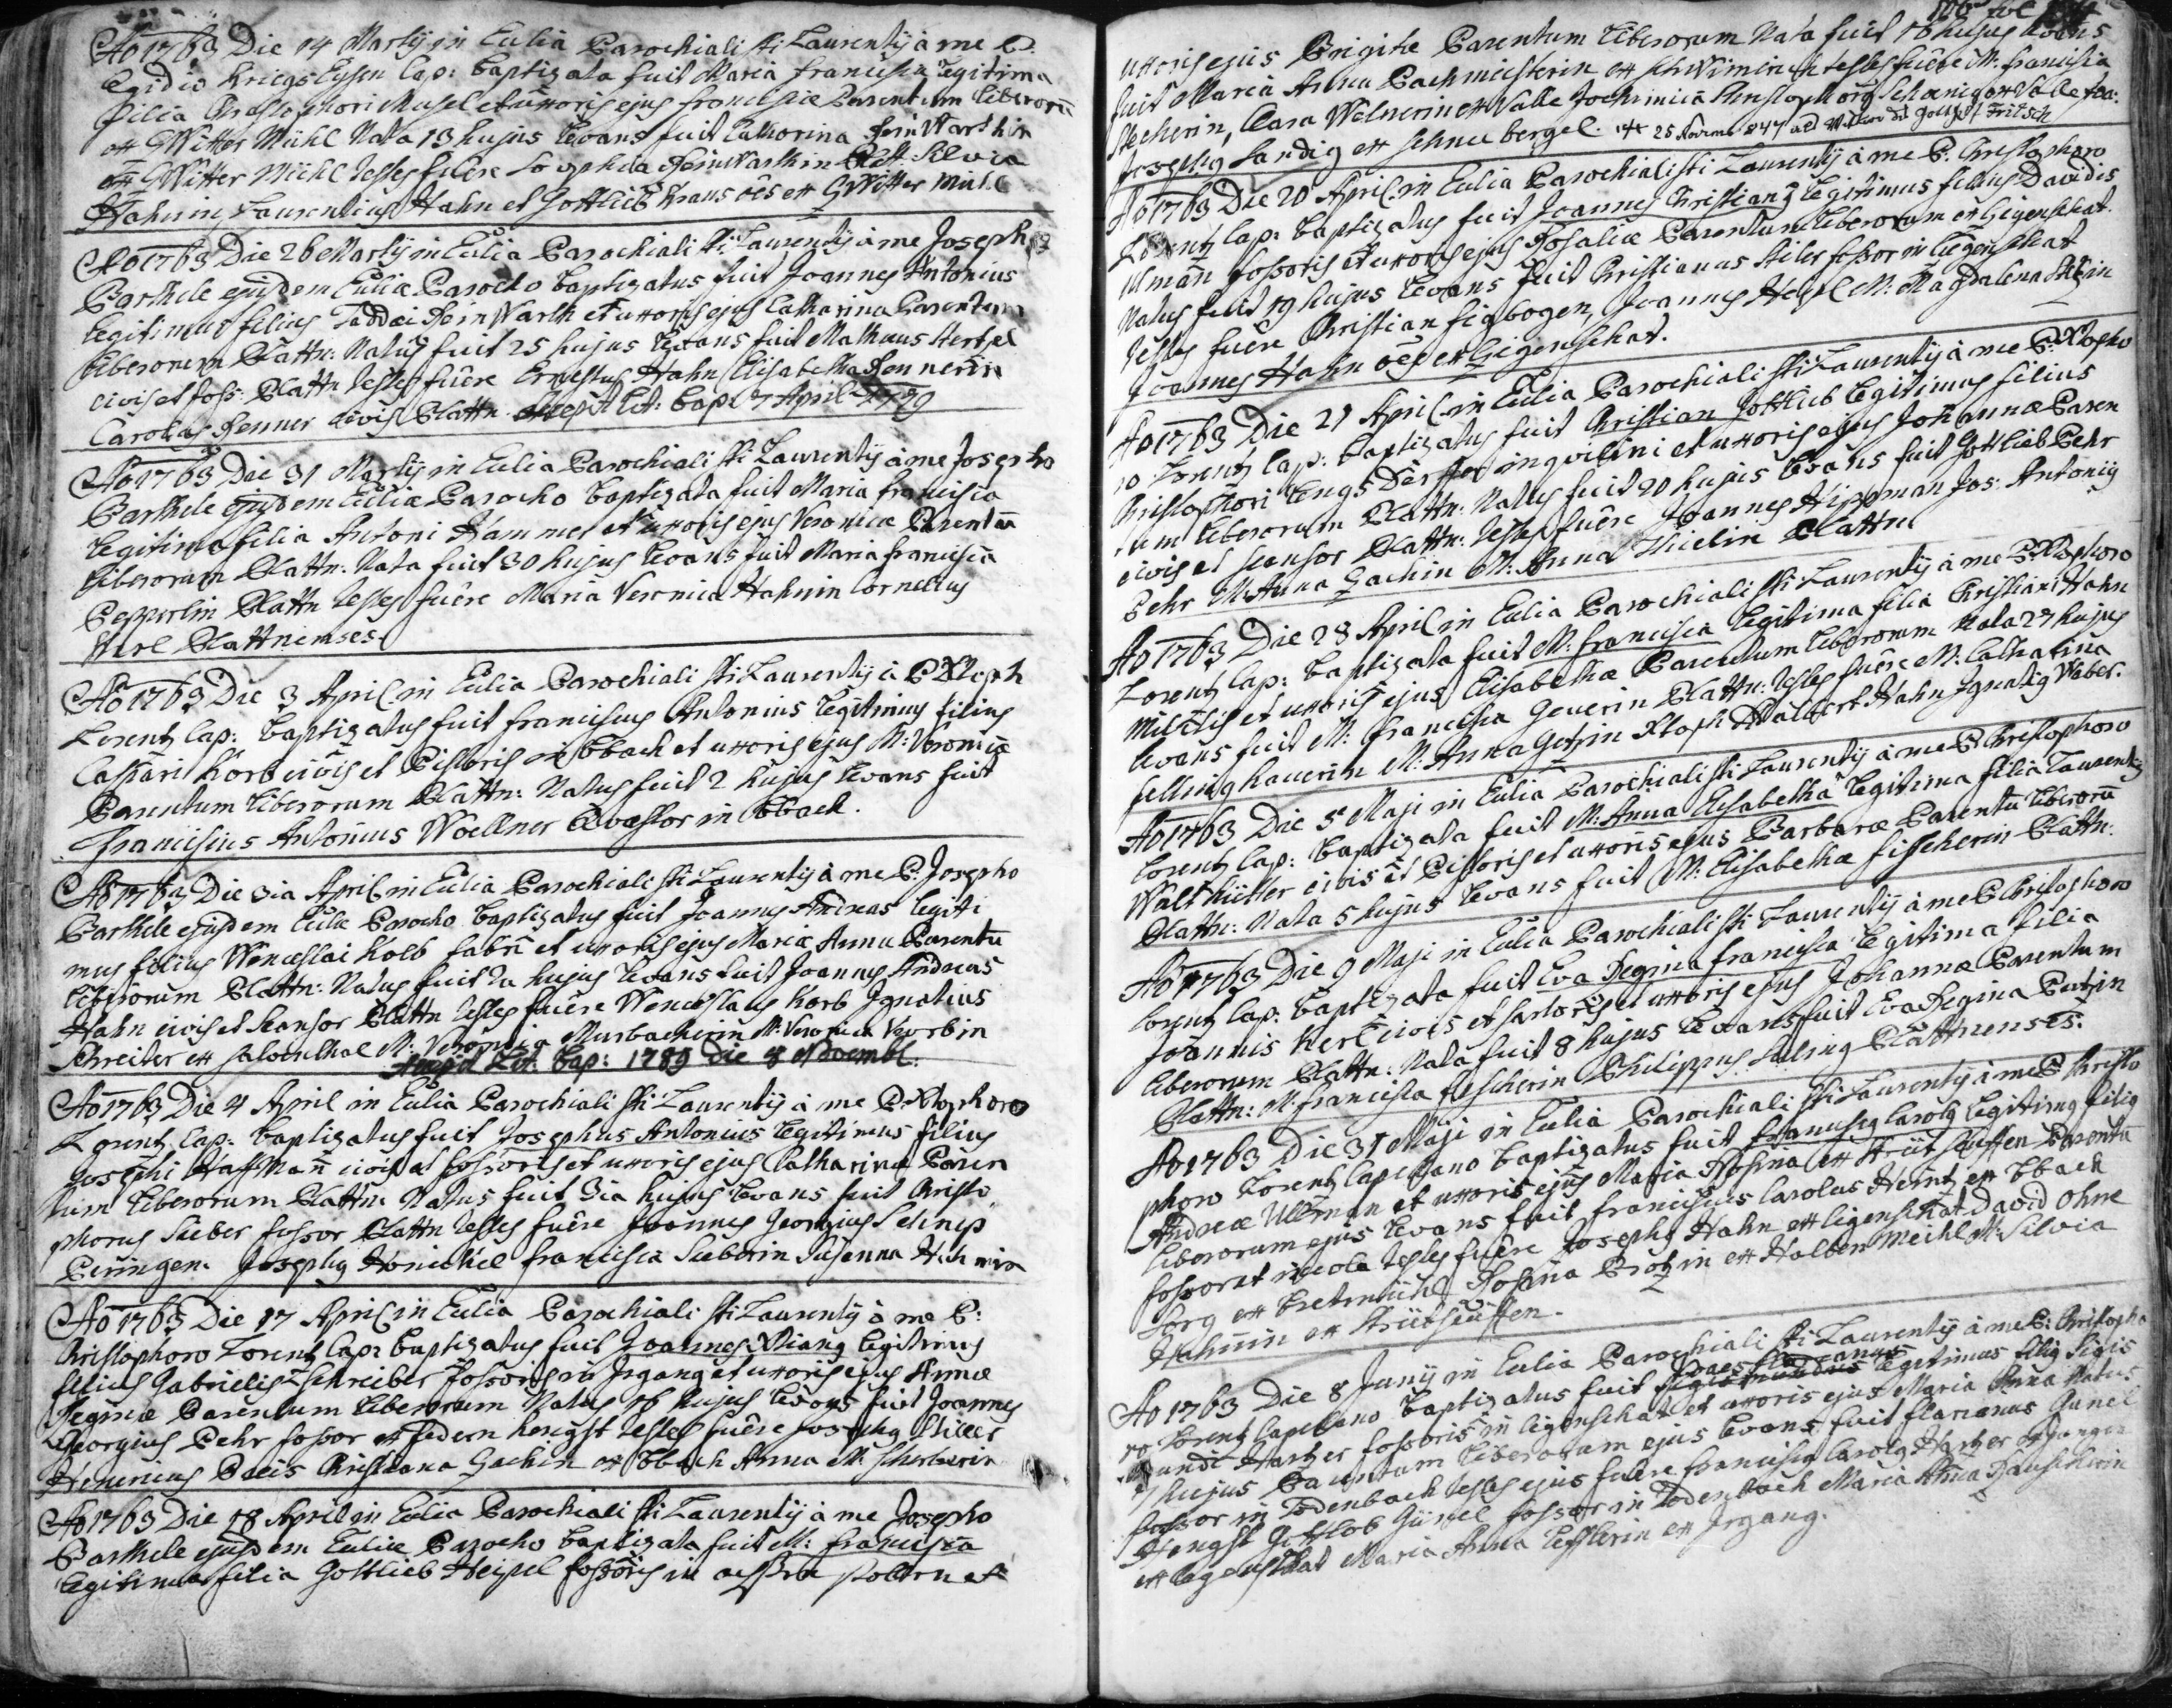 Ao 1763 Die 14 Martij in Eulia Parochiali sti Laurentij à me P.
Egidio Kriegs Eysen Cap: baptizata fuit Maria francisca legitima
filia Christophori Musel et uxoris ejus francisca Parentum liberorũ
ex GWitter Mühl Nata 13 hujus levans fuit Catharina ReinWarthin
ex GWitter Mühl testes fuêre ReinWarthin Silvia
Hahnin, Laurentius Hahn et Gottlieb Kraus oẽs ex GWitter Mühl
Ao 1763 Die 26 Martij in Eulia Parochiali sti Laurentij à me Josepho
Barthele ejusdem Euliæ Parocho baptizatus fuit Joannes Antonius
legitimus filius Taddæi ReinWarth et uxoris ejus Catharina Parentum
liberorum Plattn: Natus fuit 25 hujus levans fuit Mathæus Hertzel
civis et foss: Plattn testes fuêre Ernestus Hahn Elisabetha Rennerin
Carolus Renner civis Plattn accepit Lit: bap: 7 April
Ao 1763 Die 31 Martij in Eulia Parochiali sti Laurentij à me Josepho
Barthele ejusdem Euliæ Parocho baptizata fuit Maria francisca
legitima filia Antoni Hammer et uxoris ejus Veronicæ Parentũ
liberorum Plattn: Nata fuit 30 hujus levans fuit Maria francisca
Pepperlin Plattn testes fuêre Maria Veronica Hahnin Cornelius
Plattnenses
Ao 1763 Die 3 April in Eulia Parochiali sti Laurentij à P Xtoph
Lorentz Cap: baptizatus fuit franciscus Antonius legitimus filius
Caspari Korb civis et Pistoris in Bbach et uxoris ejus M: Veronicæ
Parentum liberorum Plattn: Natus fuit 2 hujus levans fuit
Franciscus Antonius Woellner Quæstor in Bbach.
Ao 1763 Die 3ia April in Eulia Parochiali sti Laurentij à me P. Josepho
Barthele ejusdem Euliæ Parocho baptizatus fuit Joannes Andreas legiti
mus filius Wenceslai Kolb fabri et uxoris ejus Mariæ Annæ Parentũ
liberorum Plattn: Natus fuit 2a hujus levans fuit Joannes Andreas
Hahn civis et Scansor Plattn testes fuêre Wenceslaus Korb Ignatius
Schreiter ex M: Veronica Murbacherin M: Veronica Korbin
Accepit Lit: bap: 1789 die 8 Novembr:
Ao 1763 Die 4 April in Eulia Parochiali sti Laurentij à me P. Xtophoro
Lorentz Cap: baptizatus fuit Josephus Antonius legitimus filius
Josephi Hassmañ civis et fossoris et uxoris ejus Catharinæ Paren
tum liberorum Plattn: Natus fuit 3ia hujus levans fuit Christo
phorus Sieber fossor Plattn testes fuêre Joannes Georgius
Josephus Hönickel francisca Sieberin Susanna
Ao 1763 Die 17 April in Eulia Parochiali sti Laurentij à me P:
Christophoro Lorentz Cap: baptizatus fuit Joannes Xtianus legitimus
filius Gabrielis Schreiber fossoris in Irgang et uxoris ejus Annæ
Reginæ Parentum liberorum Natus 16 hujus levans fuit Joannes
Georgius Pehr fossor ex federn hengst testes fuêre Josephus Stiller
Henricus Christiana Gachin ex Bbach Anna M: Scherberin
Ao 1763 Die 18 April in Eulia Parochiali sti Laurentij à me Josepho
Barthele ejusdem Euliæ Parocho baptizata fuit M: francisca
legitima filia Gottlieb Heipel fossoris in et
uxoris ejus Brigitæ Parentum liberorum Nata fuit 16 hujus levans
fuit Maria Anna Bachmeisterin ex testes fuêre M: francisca
Stecherin, Clara Welnerin ex Valle Jochimica Christophorus Schœnig ex Valle Joa:
Josephus Sandig ex Schneebergel. 25 Novem 847 Fritsch
Ao 1763 Die 20 April in Eulia Parochiali sti Laurentij à me P. Christophoro
Lorentz Cap: baptizatus fuit Joannes Christianus legitimus filius Davidis
Ulmañ fossoris et uxoris ejus Rosaliæ Parentum liberorum ex Ligenschat.
Natus fuit 19 hujus levans fuit Christianus Stiler fossor in Ligenschat
testes fuêre Christian figbogen, Joannes M: Magdalena
Joannes Hahn oẽs ex Ligenschat.
Ao 1763 Die 21 April in Eulia Parochiali sti Laurentij à me P. Xtopho
ro Lorentz Cap: baptizatus fuit Christian Gottlieb legitimus filius
Christophori Lengsdörffer inqvilini et uxoris ejus Johannæ Paren
tum liberorum Plattn: Natus fuit 20 hujus levans fuit Gottlieb Pehr
civis et scansor Plattn: testes fuêre Joannes Hippman Jos: Antonius
Pehr M: Anna Gachin M: Anna Thielin Plattn
Ao 1763 Die 28 April in Eulia Parochiali sti Laurentij à me P. Xtophoro
Lorentz Cap: baptizata fuit M: francisca legitima filia Christiani Hahn
militis et uxoris ejus Elisabethæ Parentum liberorum Nata 27 hujus
levans fuit M: francisca Geyerin Plattn: testes fuêre M: Catharina
fellinghauerin M: Anna Götzin Xtoph Walbert Hahn Ignatius Waber.
Ao 1763 Die 5 Maji in Eulia Parochiali sti Laurentij à me P. Christophoro
Lorentz Cap: baptizata fuit M: Anna Elisabetha legitima filia Laurentij
Walthütter civis et Pistoris et uxoris ejus Barbaræ Parentũ liberorũ
Plattn: Nata 5 hujus levans fuit M: Elisabethæ fisscherin Plattn:
Ao 1763 Die 9 Maji in Eulia Parochiali sti Laurentij à me P. Christophoro
Lorentz Cap: baptizata fuit Eva Regina francisca legitima filia
Joannis Kerl civis et sartoris et uxoris ejus Johannæ Parentum
liberorum Plattn: Nata fuit 8 hujus levans fuit Eva Regina Putzin
Plattn: M: francisca Fischerin Philippus Plattnenses.
Ao 1763 Die 31 Maji in Eulia Parochiali sti Laurentij à me P Christo
phoro Lorentz Capellano baptizatus fuit franciscus Carolus legitimus filius
Andreæ Ullman et uxoris ejus Maria Rosina ex Parentũ
liberorum ejus levans fuit franciscus Carolus Heintz ex Bbach
fossor et incola testes fuêre Josephus Hahn ex ligenschat David Ohne
Sorg ex Bretmühl Rosina Protzin ex Halben Meihl M: Silvia
Hahnin ex
Ao 1763 Die 8 Junij in Eulia Parochiali sti Laurentij à me P: Christopho
ro Lorentz Capellano baptizatus fuit legitimus filius Sigis
mundi Hartzer fossoris in ligenschat et uxoris ejus Maria Anna Natus
7 hujus Parentum liberorum ejus levans fuit florianus Günel
fossor in Todenbach testes ejus fuêre franciscus Carolus Hartzer
Hengst Gottlob Günel fossor in Todenbach Maria Anna
ex ligenschat Maria Anna ex Irgang.